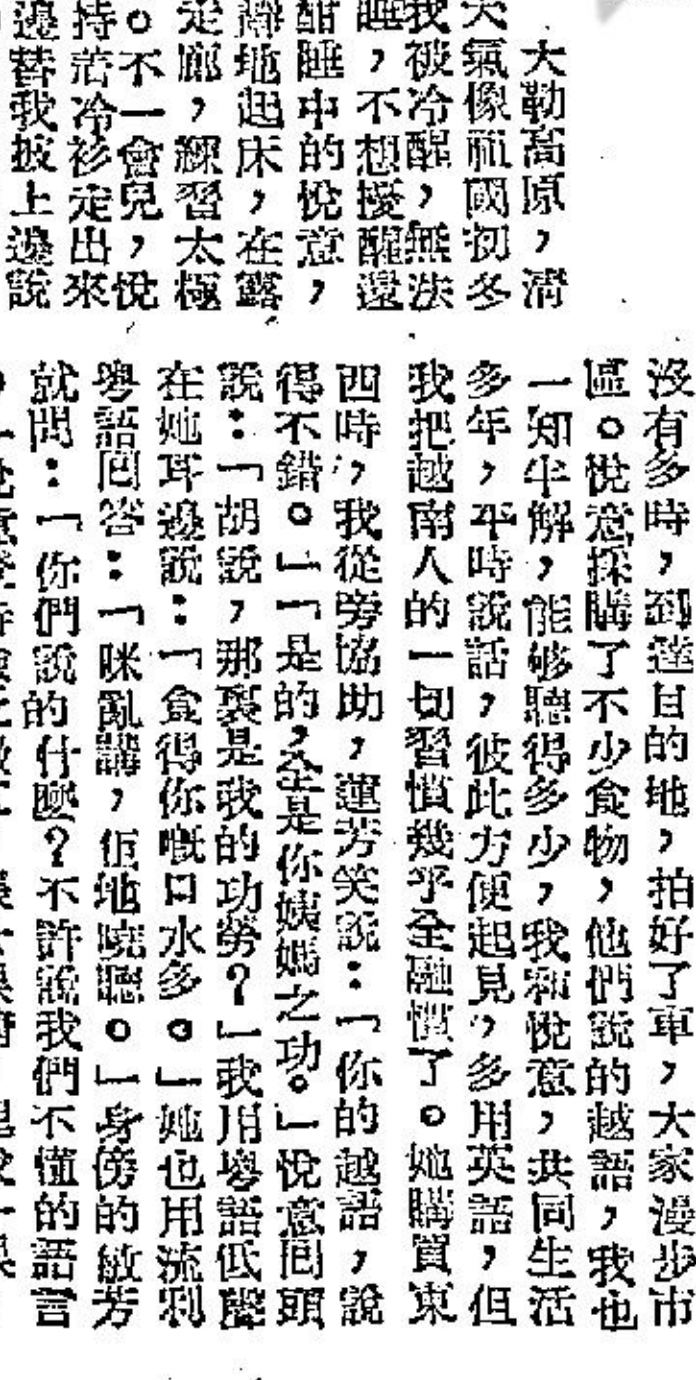 大勒高原，清
天氣像祖國初冬
我被冷醒，無法
睡，不想擾醒還
酣睡中的悅意，
靜地起床，在露
走廊，練習太極
。不一會兒，悅
持著冷衫走出來
邊替我披上邊說
沒有多時，到達目的地，拍好了車，大家漫步市
區。悅意採購了不少食物，他們說的越語，我也
一知半解，能够聽得多少，我和悅意，共同生活
多年，平時說話，彼此方便起見，多用英語，但
我把越南人的一切習慣幾乎全融慣了。她購買東
西時，我從旁協助，蓮芳笑說：「你的越語，說
得不錯。」「是的，全是你姨媽之功。」悅意囘頭
說：「胡說，那裏是我的功勞？」我用粵語低聲
在她耳邊說：「食得你嘅口水多。」她也用流利
粵語囘答：「咪亂講，佢地曉聽。」身傍的敏芳
就問：「你們說的什麼？不許說我們不懂的語言